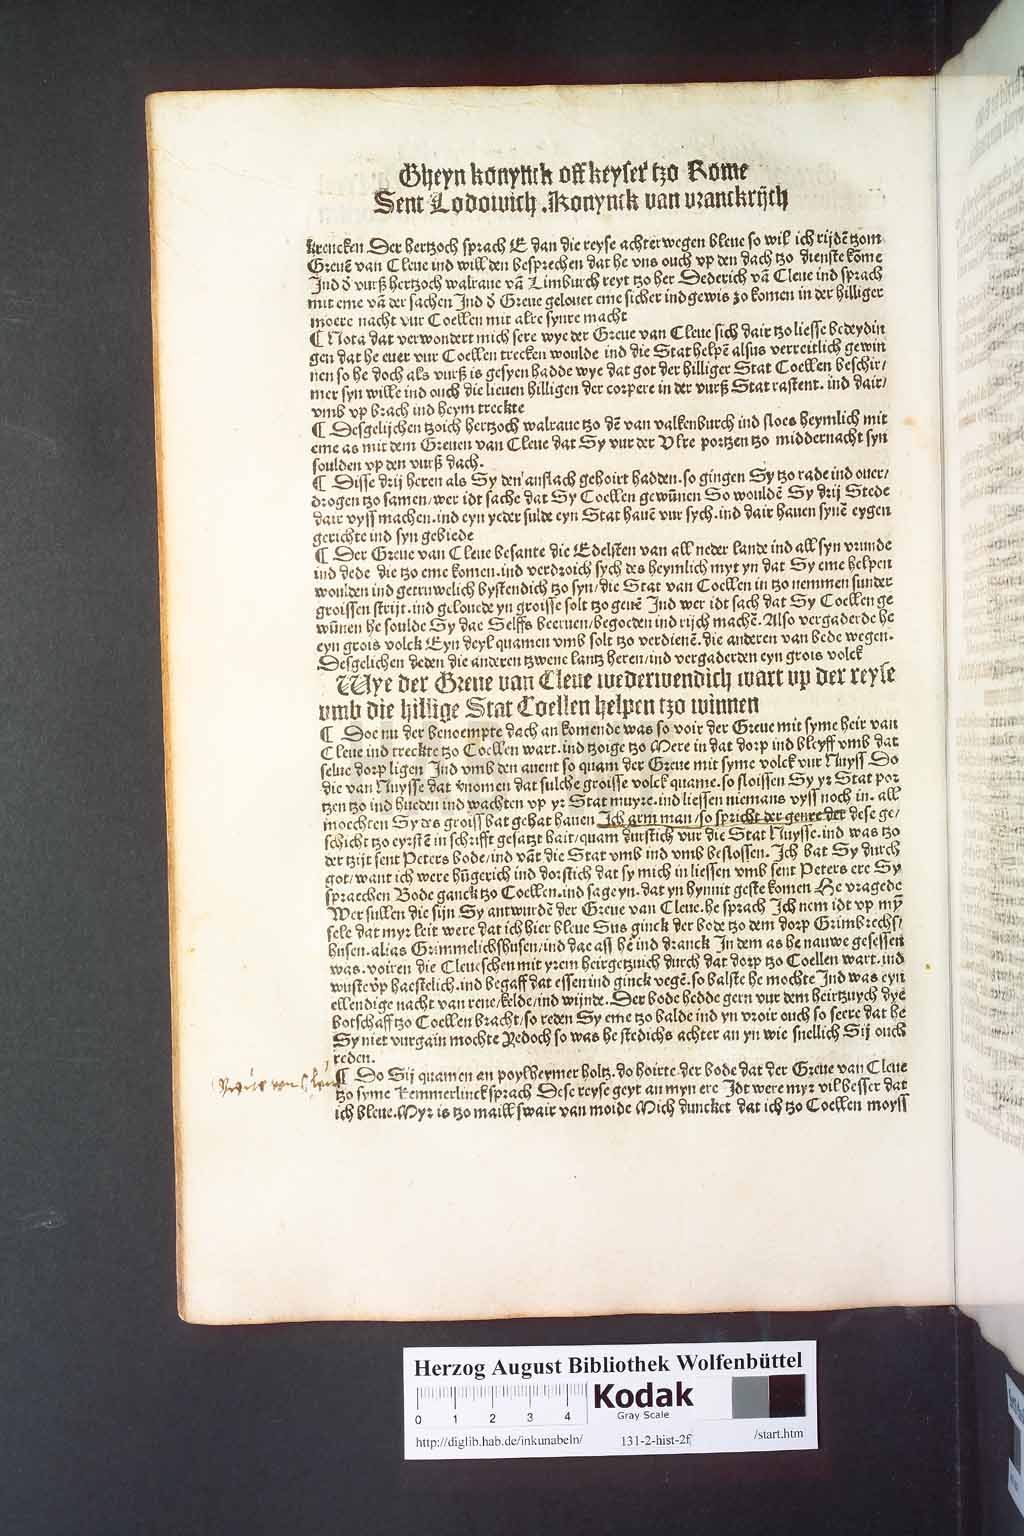 Gheyn konynck off keyser tzo Rome
Sent Lodowich. Konynck van vranckrijch
krencken Der hertzoch sprach E dan die reyse achterwegen bleue so wil ich rijdē tzom
Greuē van Cleue ind will den besprechen dat he vns ouch vp den dach tzo dienste kōme
Ind d vurß hertzoch walraue vā Limburch reyt tzo her Dederich vā Cleue ind sprach
mit eme vā der sachen Ind d Greue gelouet eme sicher ind gewis zo komen in der hilliger
moere nacht vur Coellen mit alre synre macht
¶ Nota dat verwondert mich sere wye der Greue van Cleue sich dair tzo liesse bedeydin
gen dat he euer vur Coellen trecken woulde ind die Stat helpē alsus verreitlich gewin
nen so he doch als vurß is gesyen hadde wye dat got der hilliger Stat Coellen beschir/
mer syn wille ind ouch die lieuen hilligen der corpere in der vurß Stat rastent. ind dair/
vmb vp brach ind heym treckte
¶ Desgelijchen tzoich hertzoch walraue tzo dē van valkenburch ind sloes heymlich mit
eme as mit dem Greuen van Cleue dat Sy vur der Vlre portzen tzo middernacht syn
soulden vp den vurß dach.
¶ Disse drij heren als Sy den anslach gehoirt hadden. so gingen Sy tzo rade ind ouer/
drogen tzo samen/ wer idt sache dat Sy Coellen gewūnen So wouldē Sy drij Stede
dair vyss machen. ind eyn yeder sulde eyn Stat hauē vur sych. ind dair hauen synē eygen
gerichte ind syn gebiede
¶ Der Greue van Cleue besante die Edelsten van all neder lande ind all syn vrunde
ind dede die tzo eme komen. ind verdroich sych des heymlich myt yn dat Sy eme helpen
woulden ind getruwelich bystendich tzo syn/ die Stat van Coellen in tzo nemmen sunder
groissen strijt. ind gelouede yn groisse solt tzo geuē Ind wer idt sach dat Sy Coellen ge
wūnen he soulde Sy dae Selffs beeruen/ begoeden ind rijch machē. Also vergaderde he
eyn grois volck Eyn deyl quamen vmb solt tzo verdienē. die anderen van bede wegen.
Desgelichen deden die anderen tzwene lantz heren/ ind vergaderden eyn grois volck
Wye der Greue van Cleue wederwendich wart vp der reyse
vmb die hillige Stat Coellen helpen tzo winnen
¶ Doe nu der benoempte dach an komende was so voir der Greue mit syme heir van
Cleue ind treckte tzo Coellen wart. ind tzoige tzo Mere in dat dorp ind bleyff vmb dat
selue dorp ligen Ind vmb den auent so quam der Greue mit syme volck vur Nuyss Do
die van Nuysse dat vnomen dat sulche groisse volck quame. so sloissen Sy yr Stat por
tzen tzo ind hueden ind wachten vp yr Stat muyre. ind liessen niemans vyss noch in. all
moechten Sy des groiss bat gehat hauen Ich arm man/ so spricht der genre der dese ge/
schicht tzo eyrstē in schrifft gesatzt hait/ quam durstich vur die Stat Nuysse. ind was tzo
der tzijt sent Peters bode/ ind vāt die Stat vmb ind vmb beslossen. Ich bat Sy durch
got/ want ich were hūgerich ind dorstich dat sy mich in liessen vmb sent Peters ere Sy
spraechen Bode ganck tzo Coellen. ind sage yn. dat yn hynnit geste komen He vragede
Wer sullen die sijn Sy antwurdē der Greue van Cleue. he sprach Ich nem idt vp mȳ
sele dat myr leit were dat ich hier bleue Sus ginck der bode tzo dem dorp Grimbrechs/
husen. alias Grimmelichshusen/ ind dae ass he ind dranck In dem as he nauwe gesessen
was. voiren die Cleueschen mit yrem heirgetzuich durch dat dorp tzo Coellen wart. ind
wuste vp haestelich. ind begaff dat essen ind ginck vegē. so balste he mochte Ind was eyn
ellendige nacht van rene/ kelde/ ind wijnde. Der bode hedde gern vur dem heirtzuych dye
botschaff tzo Coellen bracht/ so reden Sy eme tzo balde ind yn vroir ouch so seere dat he
Sy niet vurgain mochte Yedoch so was he stedichs achter an yn wie snellich Sij ouch
reden.
¶ Do Sij quamen an poylheymer holtz. do hoirte der bode dat der Greue van Cleue
tzo syme Kemmerlinck sprach Dese reyse geyt an myn ere Idt were myr vil besser dat
ich bleue. Myr is tzo maill swair van moide Mich duncket dat ich tzo Coellen moyss
Herzog August Bibliothek Wolfenbüttel
0 1 2 3 4
Kodak
Gray Scale
http://diglib.hab.de/inkunabeln/ 131-2-hist-2f /start.htm